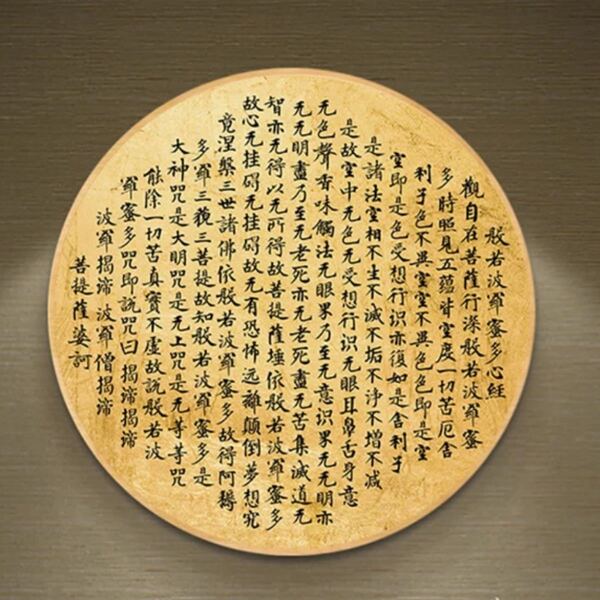 般若波羅蜜多心経
觀自在菩薩行深般若波羅蜜
多時照見五蘊皆空度一切苦厄舍
利子色不異空空不異色色即是空
空即是色受想行识亦復如是舍利子
是諸法空相不生不滅不垢不淨不增不减
是故空中无色无受想行识无眼耳鼻舌身意
无色聲香味觸法无眼界乃至无意识界无无明亦
无无明盡乃至无老死亦无老死盡无苦集滅道无
智亦无得以无所得故菩提薩埵依般若波羅蜜多
故心无挂碍无挂碍故无有恐怖远離顛倒夢想究
竟涅槃三世諸佛依般若波羅蜜多故得阿耨
多羅三藐三菩提故知般若波羅蜜多是
大神咒是大明咒是无上咒是无等等咒
能除一切苦真實不虛故說般若波
羅蜜多咒即說咒曰 揭諦揭諦
波羅揭諦 波羅僧揭諦
菩提薩婆訶